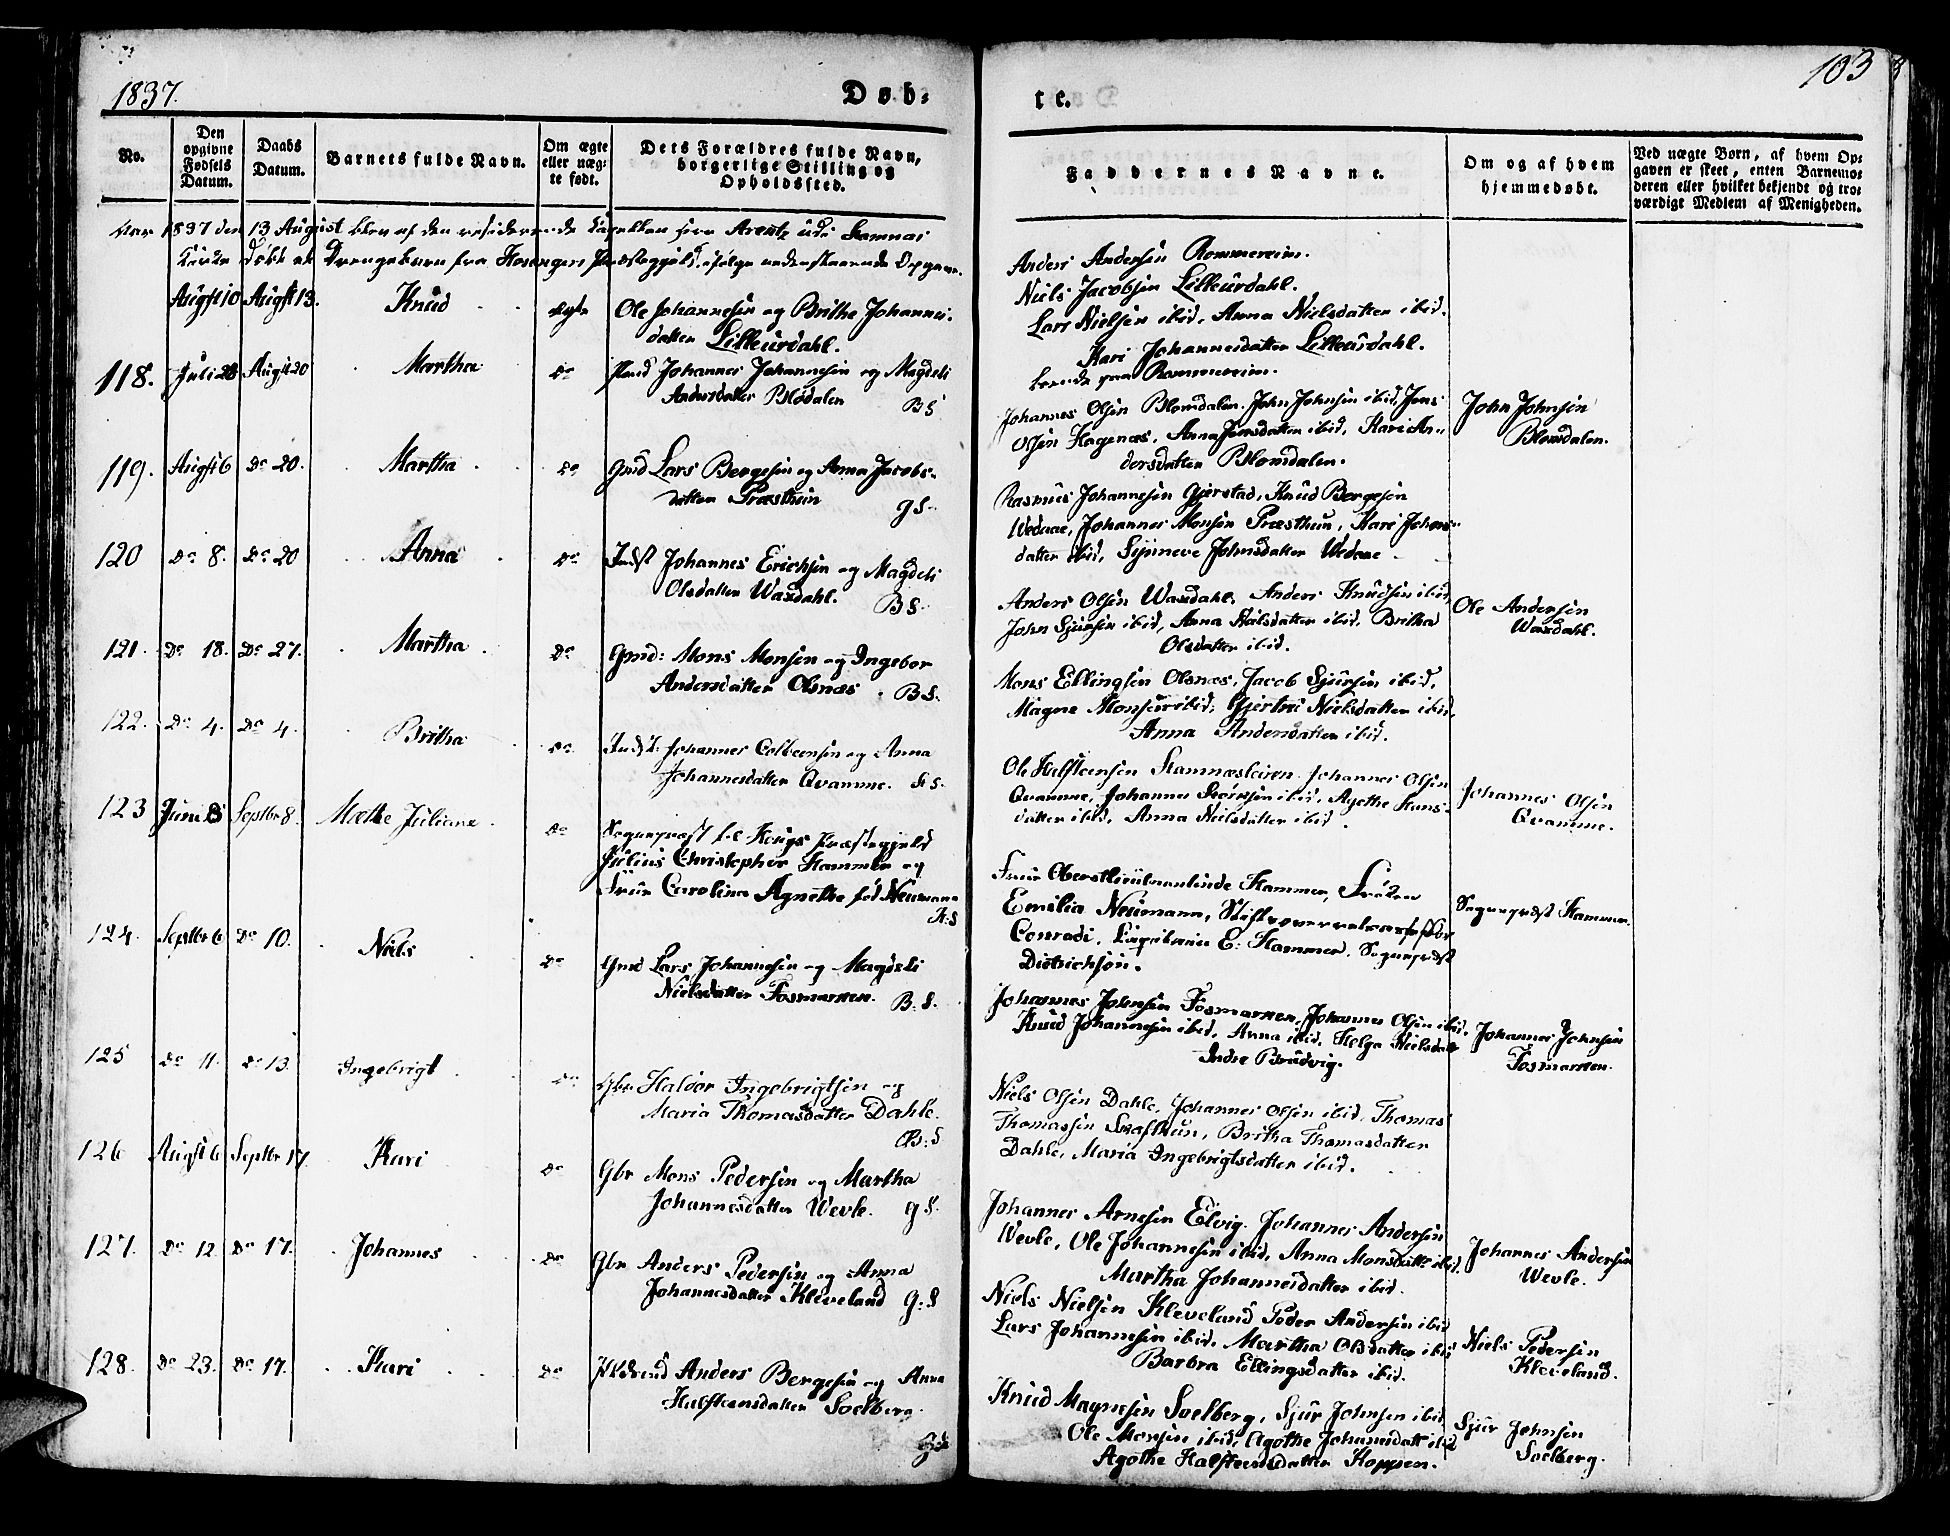 1837.
Døb-
te.
103
No.
Den opgivne Fødsels Datum.
Daabs Datum.
Barnets fulde Navn.
Om ægte eller uægte født.
Dets Forældres fulde Navn, borgerlige Stilling og Opholdssted.
Faddernes Navne.
Om og af hvem hjemmedøbt.
Ved uægte Børn, af hvem Opgaven er skeet, enten Barnemoderen eller hvilket bekjendt og troværdigt Medlem af Menigheden.
1837 den 13 August blev af den residerende Capellan Arentz udi Samnanger
Kirke døbt et Drengebarn fra Præstegjeld, ifølge nedenstaaende Opgave.
August 10 August 13. Knud ægte Ole Johannesen og Brithe Johannes-
datter Lilleurdahl.
Anders Andersen Rommereim.
Niels Jacobsen Lilleurdahl.
Lars Nielsen ibid, Anna Nielsdatter ibid.
Kari Johannesdatter Lilleurdahl.
Rommereim.
118. Juli 28 Aug 20 Martha Do Johannes Johannesen og Magdeli
Andersdatter Blødalen BS
Johannes Olsen Blomdalen. John Johnsen ibid, Jens
Olsen Hagenæs, Anna Jensdatter ibid, Kari An-
dersdatter Blomdalen.
John Johnsen
Blomdalen.
119. August 6 Do 20. Martha Do Gmd Lars Bergesen og Anna Jacobs-
datter Præsthun GS.
Rasmus Johannesen Gjerstad, Knud Bergesen
Wedaae, Johannes Monsen Præsthun, Kari Johans-
datter ibid, Synneve Johnsdatter Wedaae
120 Do 8. Do 20 Anna Do Indst Johannes Erichsen og Magdeli
Olsdatter Waxdahl. BS.
Anders Olsen Waxdahl, Anders Knudsen ibid,
John Sjursen ibid, Anna Nielsdatter ibid. Britha
Olsdatter ibid.
Ole Andersen
Waxdahl.
121. Do 18. Do 27. Martha Do Gmd: Mons Monsen og Ingebor
Andersdatter Olsnæs. BS.
Mons Ellingsen Olsnæs, Jacob Sjursen ibid,
Magne Monsen ibid, Gjertru Nielsdatter ibid,
Anna Andersdatter ibid.
122. Do 4. Do 4. Britha Do. Indst. Johannes Colbensen og Anna
Johannesdatter Qvamme. HS.
Ole Halsteensen Hamnæsleiren. Johannes Olsen
Qvamme, Johannes ibid, Agethe Hans-
datter ibid, Anna Nielsdatter ibid.
Johannes Olsen
Qvamme.
123 Juni 8 Septbr 8. Methe Juliane Do Sognepræst til Hougs Præstegjeld
Julius Christopher Hammer og
Frue Carolina Agnethe fød Neumann H:S
Frue Oberstlieutenantinde Hammer, Frøken
Emilia Neumann,
Conradi, E: Hammer. Sognepræst
Dietrichson.
Sognepræst Hammer.
124. Septbr 6 Do 10. Niels Do Gmd Lars Johannesen og Magdeli
Nielsdatter Fosmarken. B:S.
Johannes Johnsen Fosmarken. Johannes Olsen ibid,
Knud Johannesen ibid, Anna ibid. Helga Nielsdatt
Indre Brudvig.
Johannes Johnsen
Fosmarken.
125 Do 11. Do 13. Ingebrigt Do Gbr Haldor Ingebrigtsen og
Maria Thomasdatter Dahle.
B:S
Niels Olsen Dahle, Johannes Olsen ibid, Thomas
Thomassen Skafthun, Britha Thomasdatter
Dahle, Maria Ingebrigtsdatter ibid.
126 August 6 Septbr 17. Kari Do Gbr Mons Pedersen og Martha
Johannesdatter Wevle. GS.
Johannes Arnesen Elvig. Johannes Andersen
Wevle, Ole Johannesen ibid, Anna Monsdatter ibid,
Martha Johannesdatter ibid.
Johannes Andersen
Wevle.
127. Do 12. Do 17. Johannes Do Gbr Anders Pedersen og Anna
Johannesdatter Kleveland G:S
Niels Nielsen Kleveland Peder Andersen ibid
Lars Johannesen ibid, Martha Olsdatter ibid
Barbra Ellingsdatter ibid.
Niels Pedersen
Kleveland.
128. Do 23. Do 17. Kari Do Anders Bergesen og Anna
Halsteensdatter Soelberg.
Knud Magnesen Soelberg, Sjur Johnsen ibid,
Ole Monsen ibid, Agothe Johannesdatt ibid
Agothe Halsteensdatter Hoppen.
Sjur Johnsen
Soelberg.